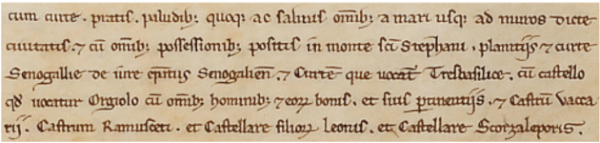 cum curte. pratis. piludib; quoq; ac saltius omib; a mari usq; ad muros dicte
ciuitatis. ⁊ cū omib; possessionib; positis in monte scī Stephani. planitijs ⁊ curte
Senogallie de iure Senogalien̄. ⁊ Curtem que uocat̄ Tresbasilice. cū castello
qd̄ uocatur Orgiolo cū omib; hominib; ⁊ eoꝝ bonis. et suis ꝑtinentijs. ⁊ Castrū Vacca
rij. Castrum Ramusceti. et Castellare filioꝝ Leonis. et Castellare Scorzaleporis.